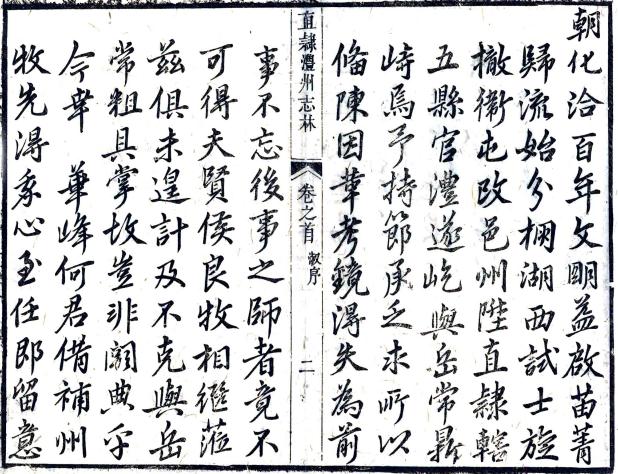 朝化洽百年文明益啟苗菁
歸流始分棚湖西試士旋
撤衞屯改邑州陞直隸轄
五縣官澧遂屹與岳常鼎
峙焉予持節承乏求所以
俻陳因革考鏡淂失為前
直隸澧州志林 卷之首 敘序 二
事不忘後事之師者竟不
可得夫賢侯良牧相繼蒞
茲俱未遑計及不克與岳
常粗具掌故豈非闕典乎
今幸 華峰何君借補州
牧先淂我心至任即留意